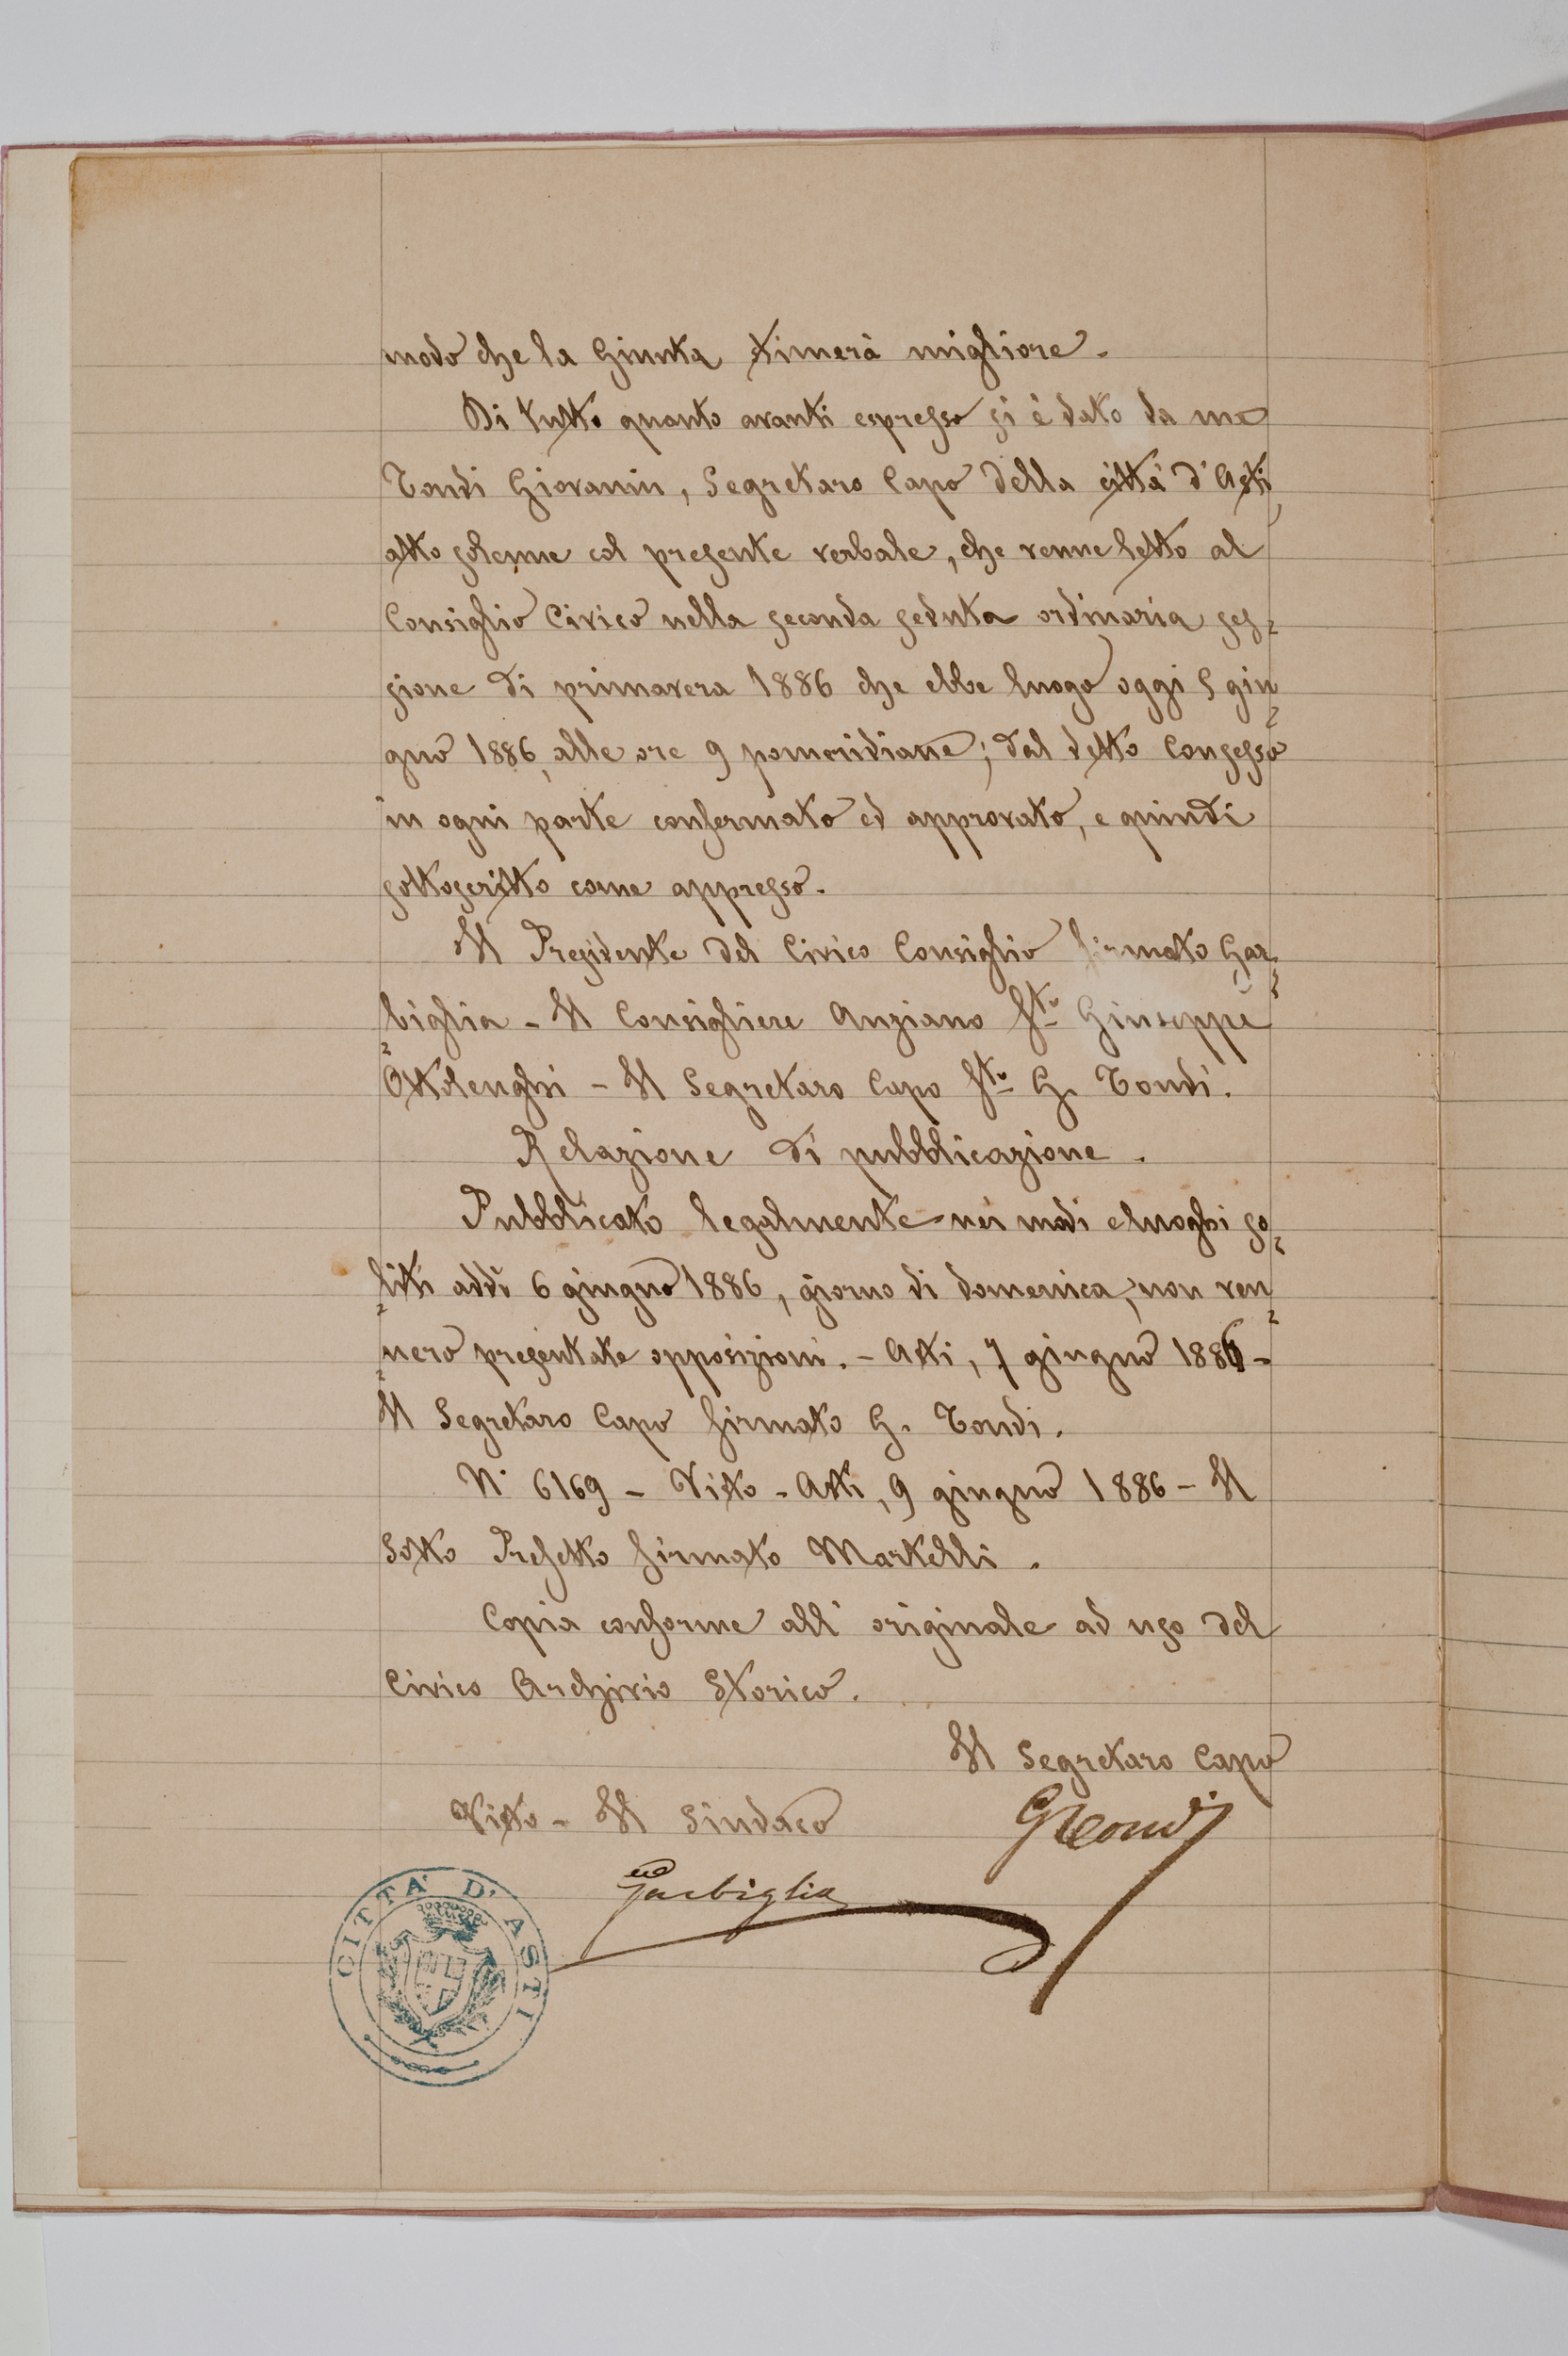 modo che la Giunta stimerà migliore.
Di tutto quanto avanti espresso si è dato da me
Tondi Giovanni, Segretaro Capo della città d'Asti,
atto solenne col presente verbale, che venne letto al
Consiglio Civico nella seconda seduta ordinaria ses=
sione di primavera 1886 che ebbe luogo oggi 5 giu=
gno 1886, alle ore 9 pomeridiane; dal detto Consesso
in ogni parte confermato ed approvato, e quindi
sottoscritto come appresso.
Il Presidente del Civico Consiglio firmato Gar=
biglia - Il Consigliere Anziano f.to Giuseppe
Ottolenghi - Il Segretaro Capo f.to G. Tondi.
Relazione di pubblicazione.
Pubblicato legalmente nei modi e luoghi so=
liti addì 6 giugno 1886, giorno di domenica, non ven=
nero presentate opposizioni. - Asti, 7 giugno 1886 -
Il Segretaro Capo firmato G. Tondi.
N. 6169 - Visto - Asti, 9 giugno 1886 - Il
Sotto Prefetto firmato Martelli.
Copia conforme all'originale ad uso del
Civico Archivio Storico.
Il Segretaro Capo
Visto - Il Sindaco
G Tondi
Garbiglia
CITTA' D'ASTI